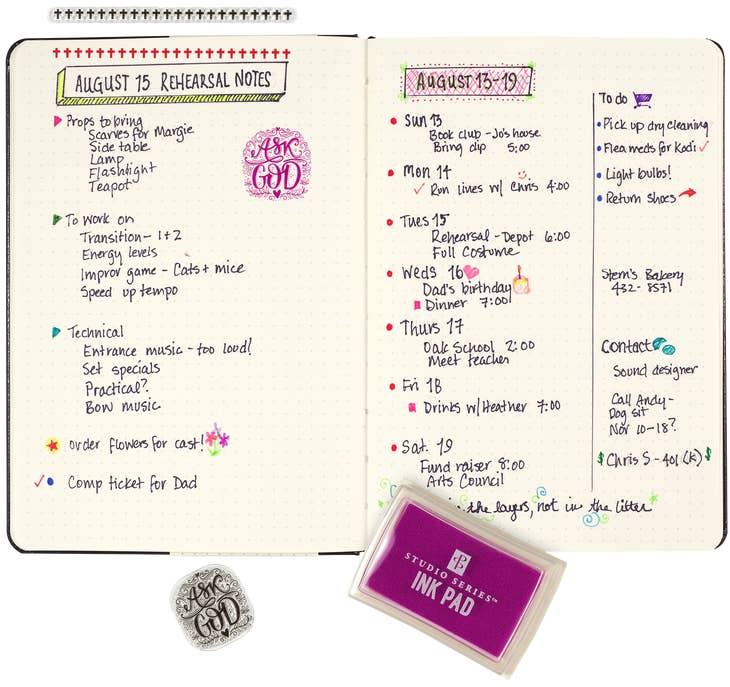 AUGUST 15 REHEARSAL NOTES
Props to bring
Scarves for Margie
Side table
Lamp
Flashlight
Teapot
ASK
GOD
To work on
Transition - 1+2
Energy levels
Improv game - Cats + mice
Speed up tempo
Technical
Entrance music - too loud!
Set specials
Practical?
Bow music
order flowers for cast!
Comp ticket for Dad
AUGUST 13-19
Sun 13
Book club - Jo's house
Bring dip 5:00
Mon 14
Run lines w/ Chris 4:00
Tues 15
Rehearsal - Depot 6:00
Full Costume
Weds 16
Dad's birthday
Dinner 7:00
Thurs 17
Oak School 2:00
Meet teacher
Fri 18
Drinks w/Heather 7:00
Sat. 19
Fund raiser 8:00
Arts Council
the layers, not in the litter
To do
Pick up dry cleaning
Flea meds for Kodi
Light bulbs!
Return shoes
Stern's Bakery
432-8571
Contact
Sound designer
Call Andy-
Dog sit
Nov 10-18?
Chris S - 401 (k)
ASK
GOD
STUDIO SERIES™
INK PAD